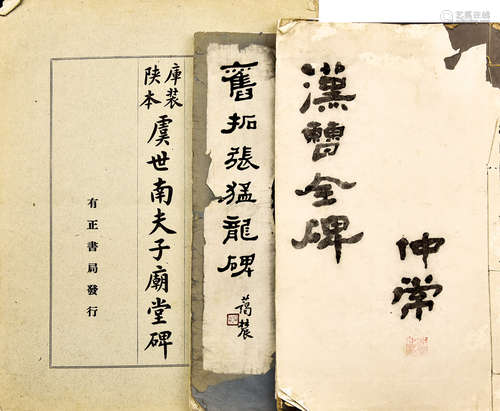 庫裝
陝本
虞世南夫子廟堂碑
有正書局發行
舊拓張猛龍碑
藹農
漢曹全碑
仲常